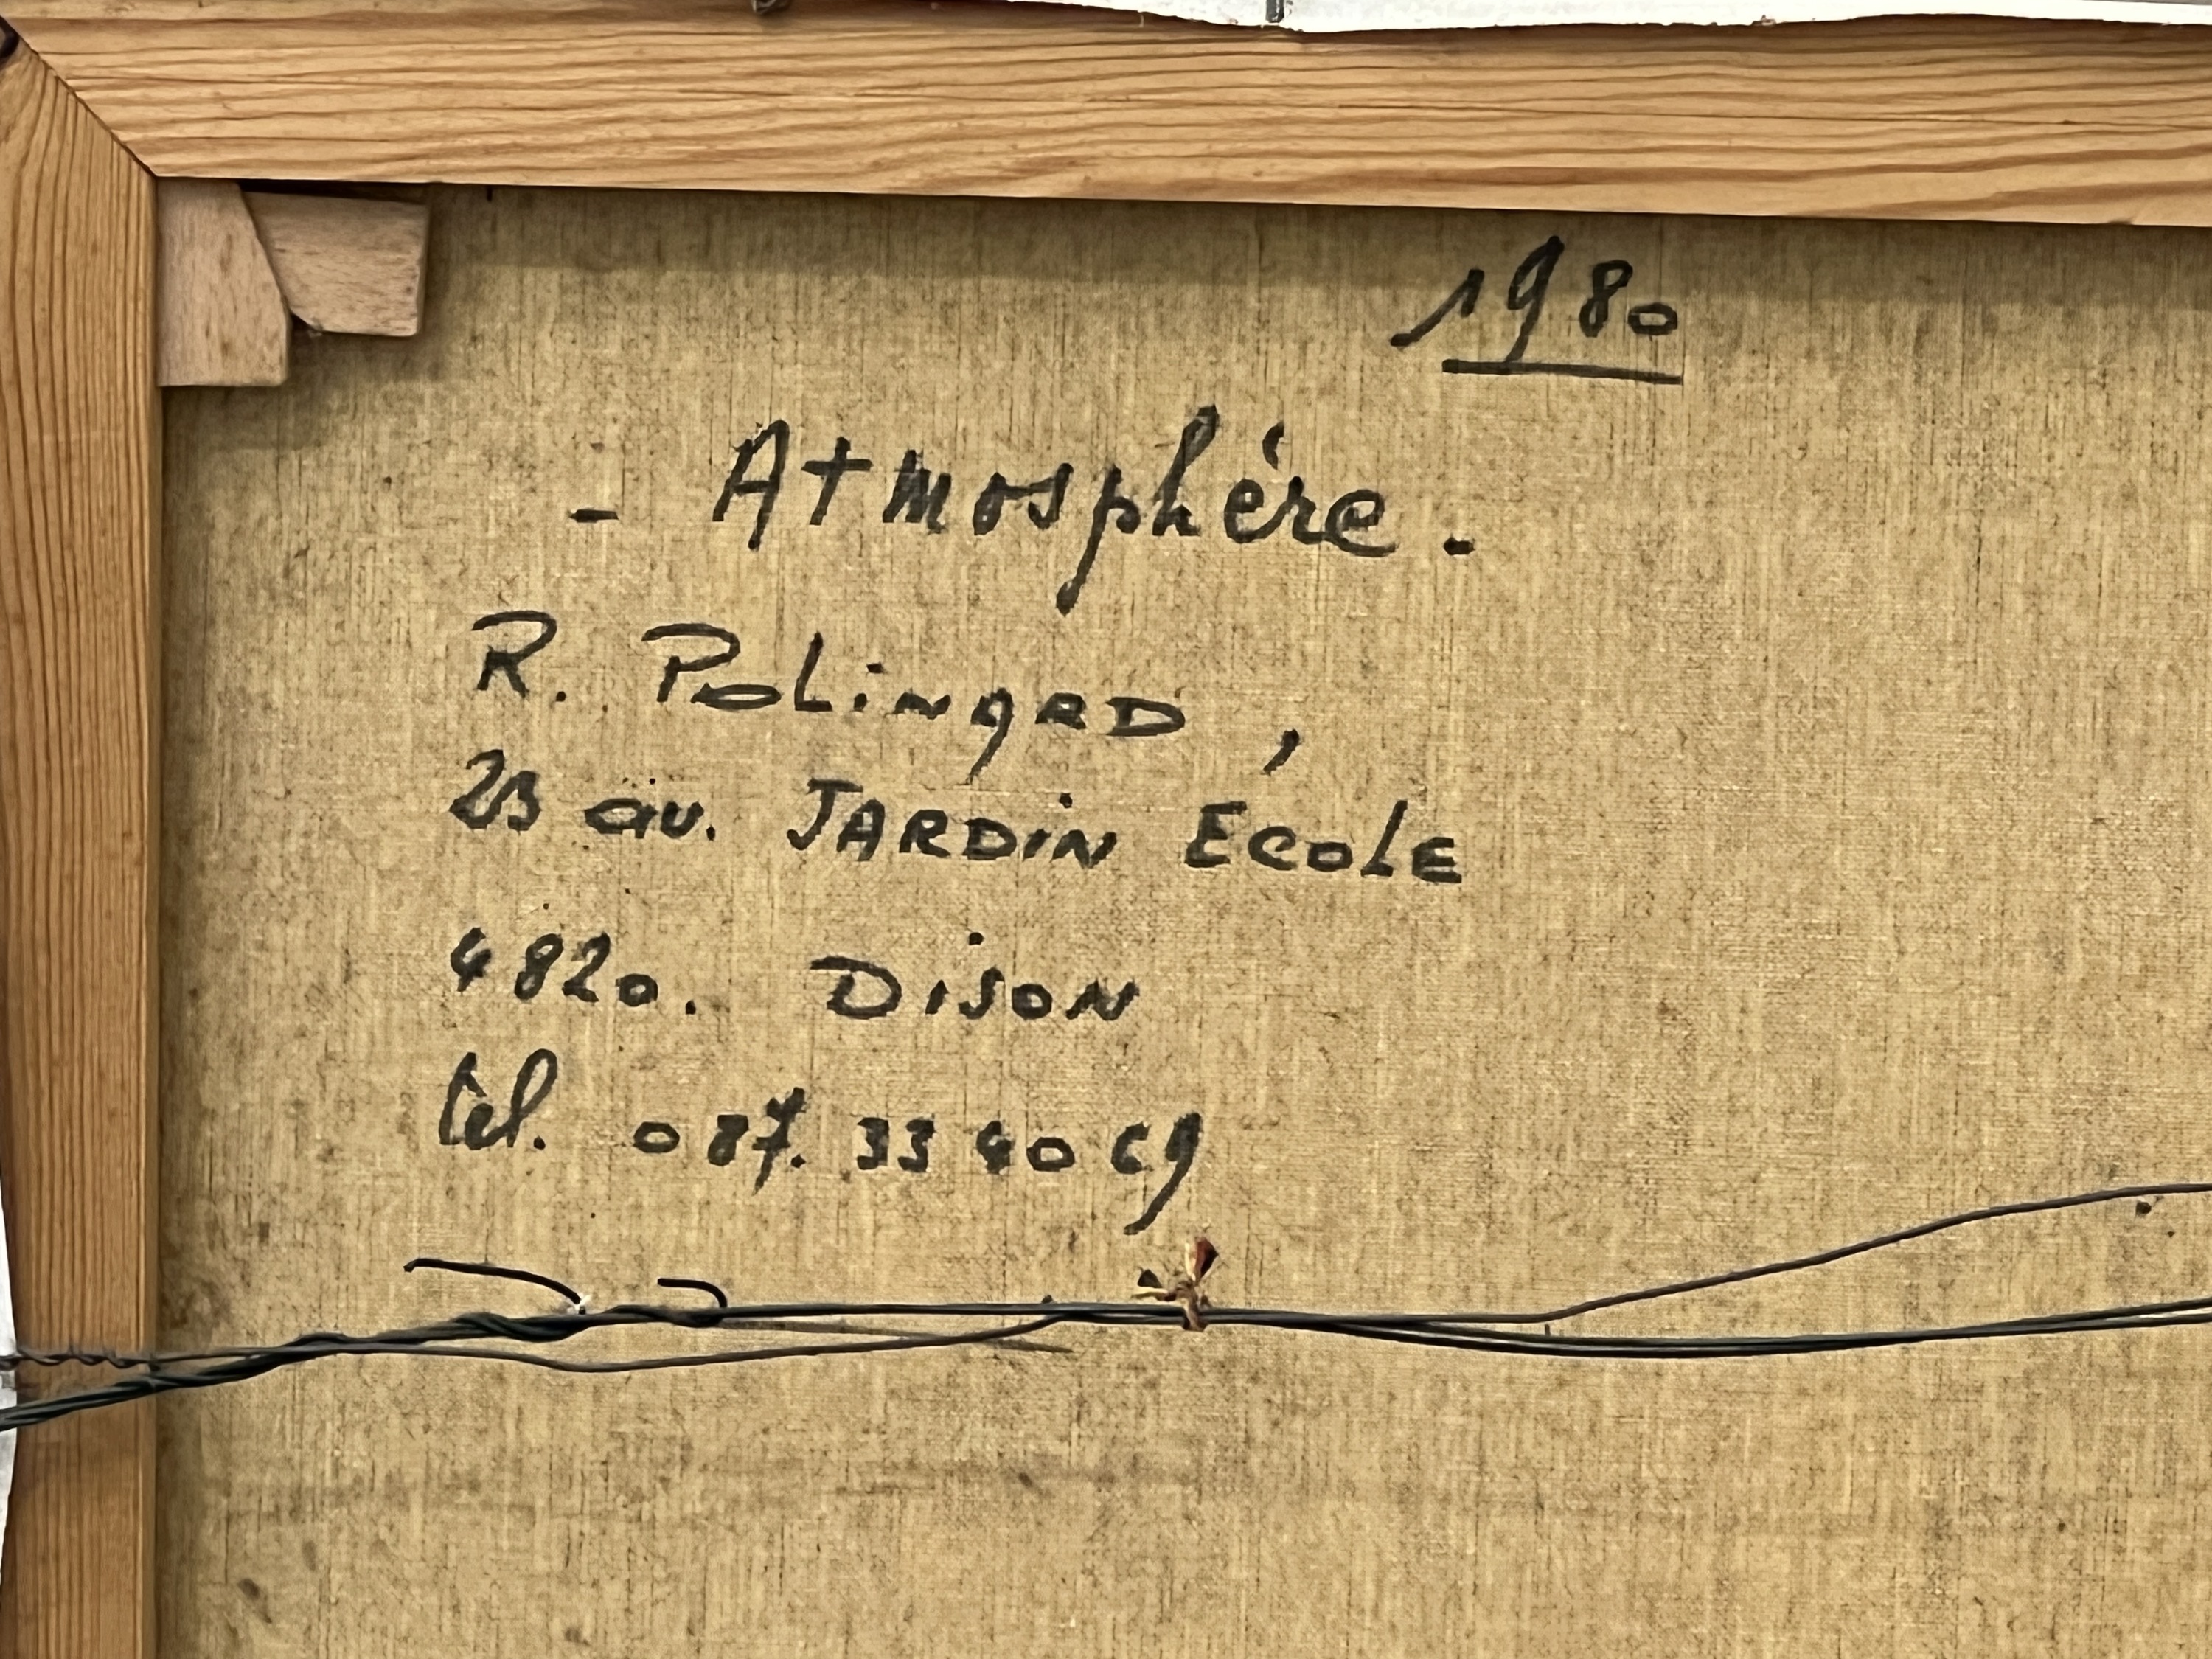 1980
- Atmosphère.
R. PoLinaRD,
23 av. JARDiN ECoLE
4820. DisoN
tél. 087. 33 40 69